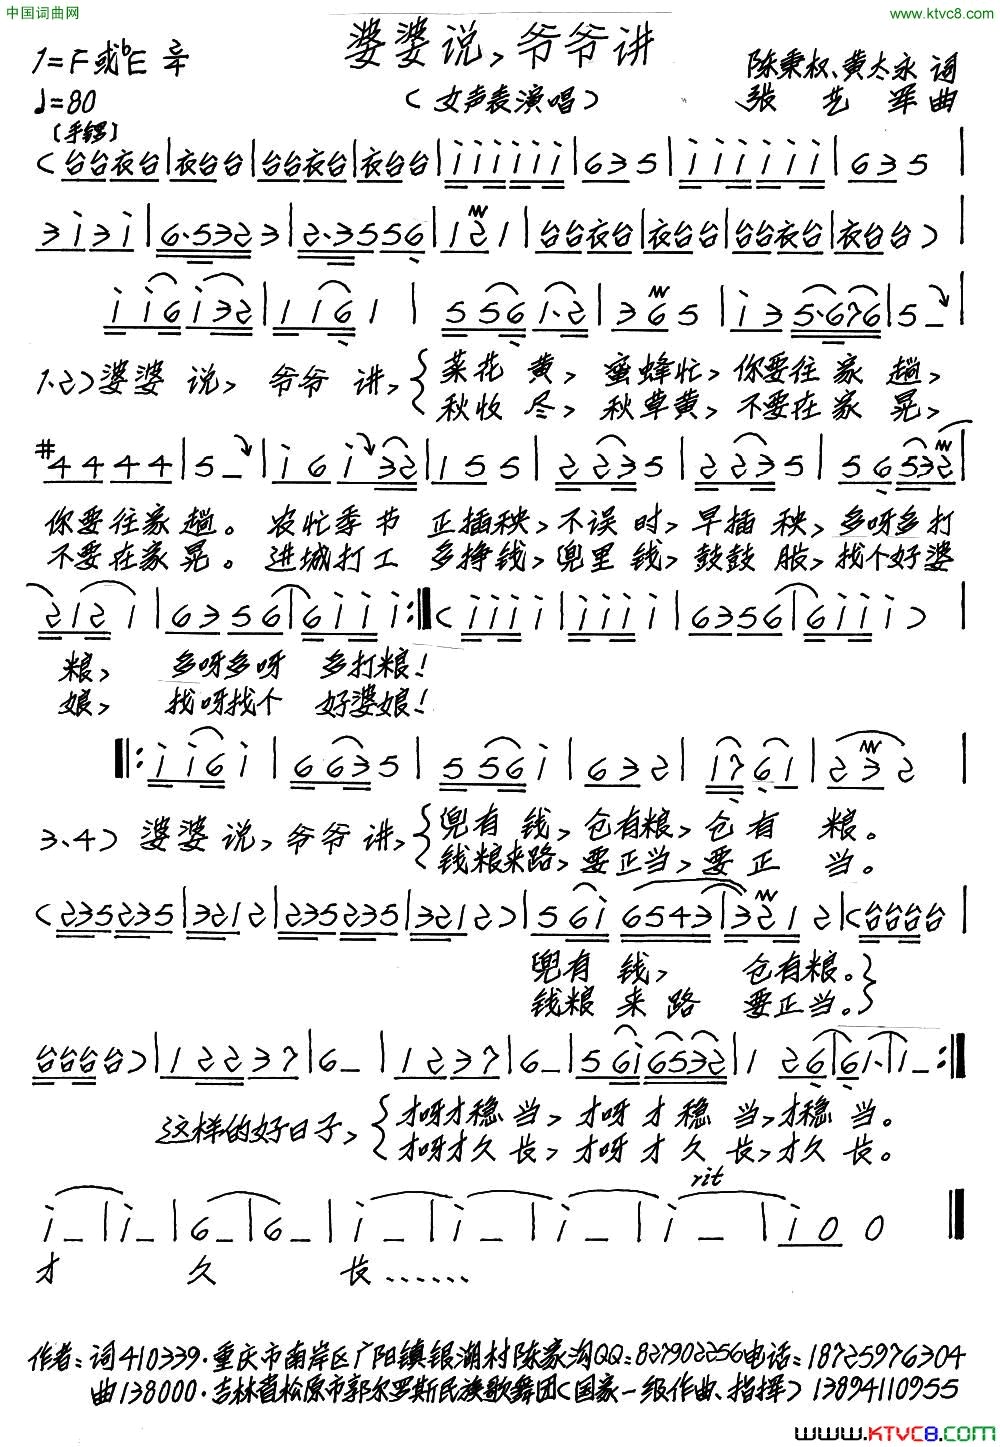 中国词曲网 www.ktvc8.com
婆婆说，爷爷讲
1=F或♭E 2/4 陈秉权、黄太永 词
♩=80 （女声表演唱） 张艺军 曲
〔手锣〕
（台台衣台|衣台台|台台衣台|衣台台|i i i i i i|6 3 5|i i i i i i|6 3 5|
3 i 3 i|6·5 3 2 3|2·3 5 5 6|1 2 1|台台衣台|衣台台|台台衣台|衣台台）|
i i 6 i 3 2|1 i 6 1|5 5 6 1·2|3 6 5|i 3 5·6 7 6|5 –|
1.2）婆婆说，爷爷讲，菜花黄，蜜蜂忙，你要往家趟，
秋收尽，秋草黄，不要在家晃，
#4 4 4 4|5 –|i 6 i 3 2|1 5 5|2 2 3 5|2 2 3 5|5 6 5 3 2|
你要往家趟。农忙季节 正插秧，不误时，早插秧，多呀多打
不要在家晃。进城打工 多挣钱，兜里钱，鼓鼓胀，找个好婆
2 1 2 i|6 3 5 6|6 i i i:‖（i i i i|i i i i|6 3 5 6|6 i i i）|
粮，多呀多呀 多打粮！
娘，找呀找个 好婆娘！
‖:i i 6 i|6 6 3 5|5 5 6 i|6 3 2|1 7 6 1|2 3 2|
3.4）婆婆说，爷爷讲，兜有钱，仓有粮，仓有粮。
钱粮来路，要正当，要正当。
（2 3 5 2 3 5|3 2 1 2|2 3 5 2 3 5|3 2 1 2）|5 6 i 6 5 4 3|3 2 1 2|（台台台台|
兜有钱，仓有粮。
钱粮来路 要正当。
台台台台）|1 2 2 3 7|6 –|1 2 3 7|6 –|5 6 i 6 5 3 2|1 2 6|6 1·|1 –:‖
这样的好日子，才呀才稳当，才呀才稳当，才稳当。
才呀才久长，才呀才久长，才久长。
rit
i –|i –|6 –|6 –|i –|i –|i –|i –|i 0 0‖
才久长……
作者：词410339·重庆市南岸区广阳镇银湖村陈家沟QQ：827902256电话：18725976304
曲138000·吉林省松原市郭尔罗斯民族歌舞团（国家一级作曲、指挥）13894110955
www.KTVC8.com